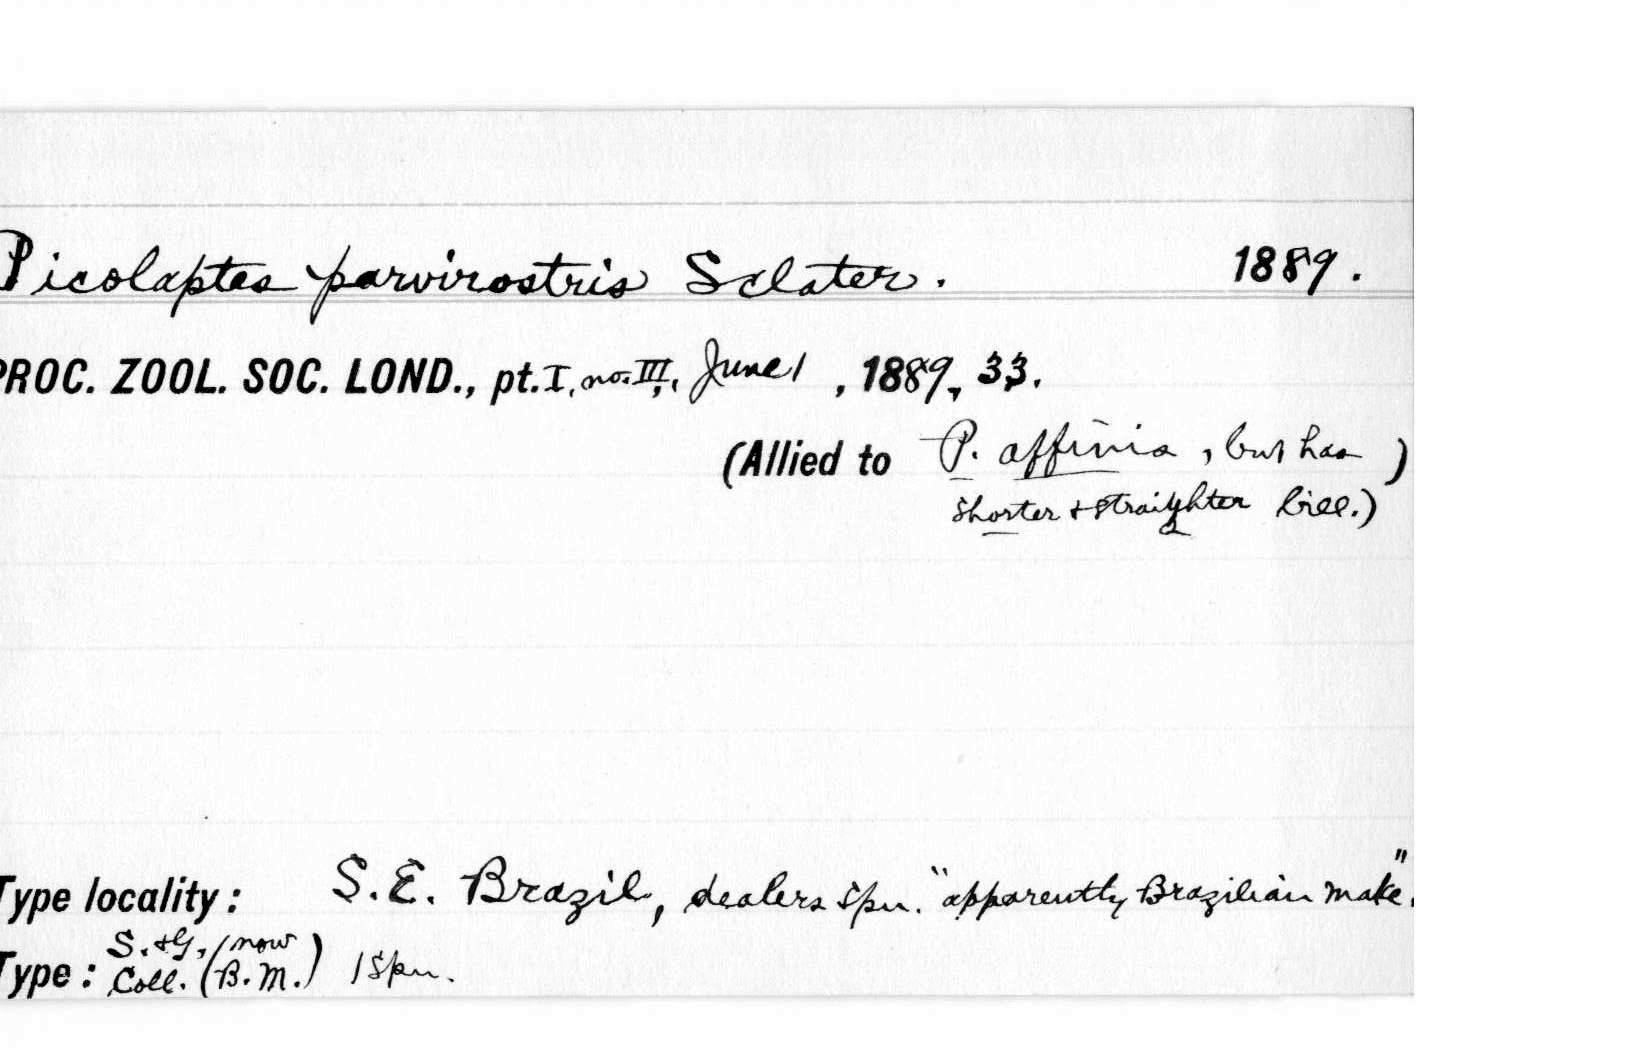 Picolaptes parvirostris Sclater. 1889.
PROC. ZOOL. SOC. LOND., pt. I, no. III, June 1, 1889, 33.
(Allied to P. affinis, but has )
shorter & straighter bill.)
Type locality: S.E. Brazil, dealers spn. "apparently Brazilian make."
S. & G., (now
Type: Coll. (B.M.) 1 spn.